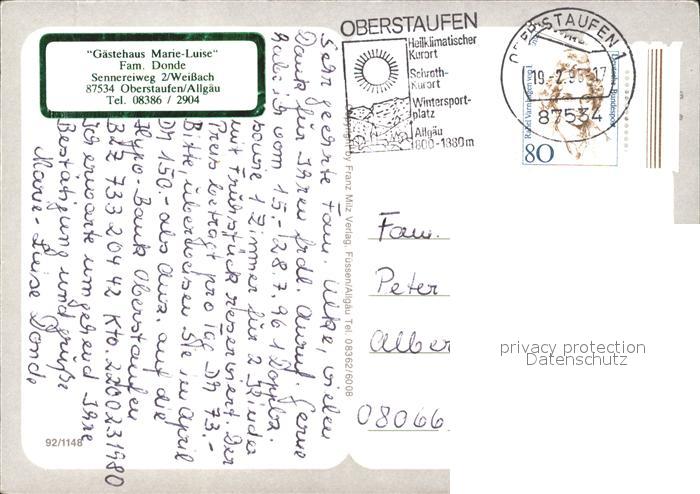 "Gästehaus Marie-Luise"
Fam. Donde
Sennereiweg 2/Weißach
87534 Oberstaufen/Allgäu
Tel. 08386 / 2904
OBERSTAUFEN
Heilklimatischer
Kurort
Schroth-
Kurort
Wintersport-
platz
Allgäu
800-1880m
OBERSTAUFEN 1
19.-2.96-17
87534
Deutsche Bundespost
80
Sehr geehrte Fam. Ulke, vielen
Dank für Ihren frdl. Anruf. Gerne
habe ich vom 15.-28.7.96 1 Doppbz.
sowie 1 Zimmer für 2 Kinder
mit Frühstück reserviert. Der
Preis beträgt pro Tag DM 73.-
Bitte, überweisen Sie im April
DM 150.- als Anz. auf die
Hypo-Bank Oberstaufen
BLZ 733 204 42 Kto. 2200231980
Ich erwarte umgehend Ihre
Bestätigung und grüße
Marie-Luise Donde
Copyright by Franz Milz Verlag, Füssen/Allgäu Tel. 08362/6008
Fam.
Peter
Alber
08066
privacy protection
Datenschutz
92/1148